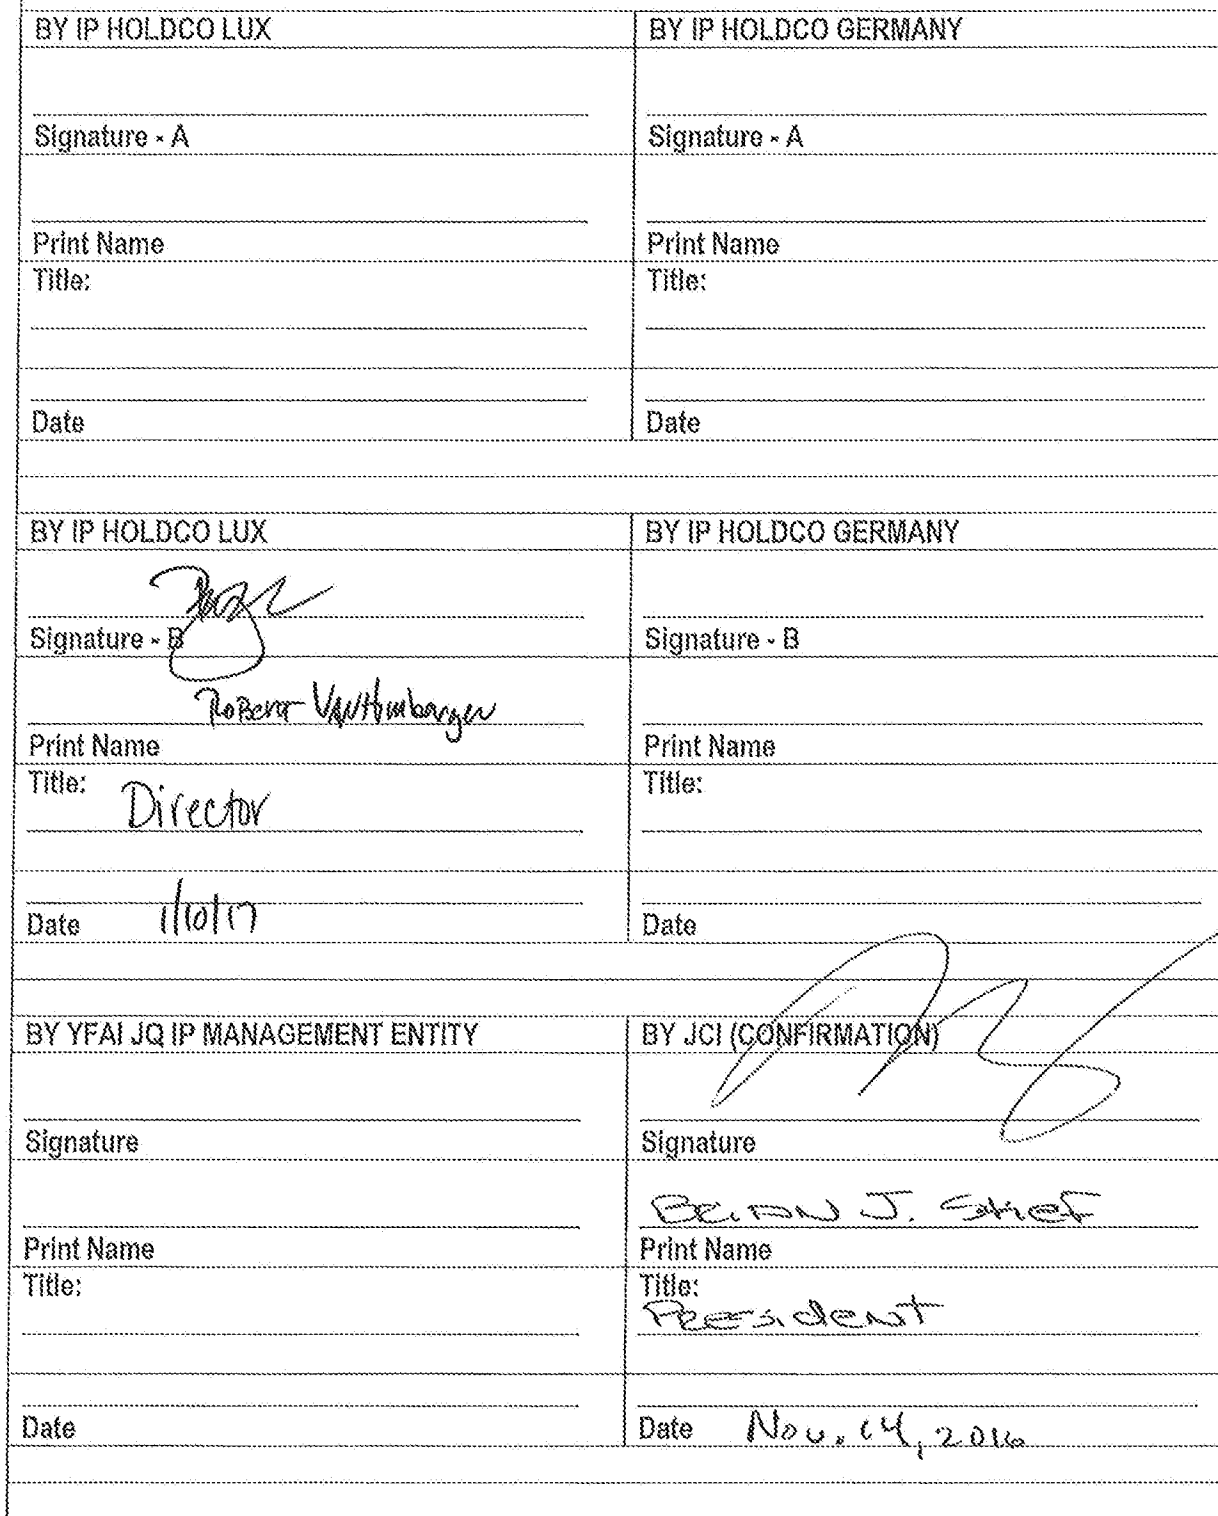 BY IP HOLDCO LUX
BY IP HOLDCO GERMANY
Signature - A
Signature - A
Print Name
Print Name
Title:
Title:
Date
Date
BY IP HOLDCO LUX
BY IP HOLDCO GERMANY
Signature - B
Signature - B
Robert VanHimbergen
Print Name
Print Name
Title: Director
Title:
Date 1/10/17
Date
BY YFAI JQ IP MANAGEMENT ENTITY
BY JCI (CONFIRMATION)
Signature
Signature
Brian J. Stief
Print Name
Print Name
Title:
Title:
President
Date
Date Nov. 14, 2016